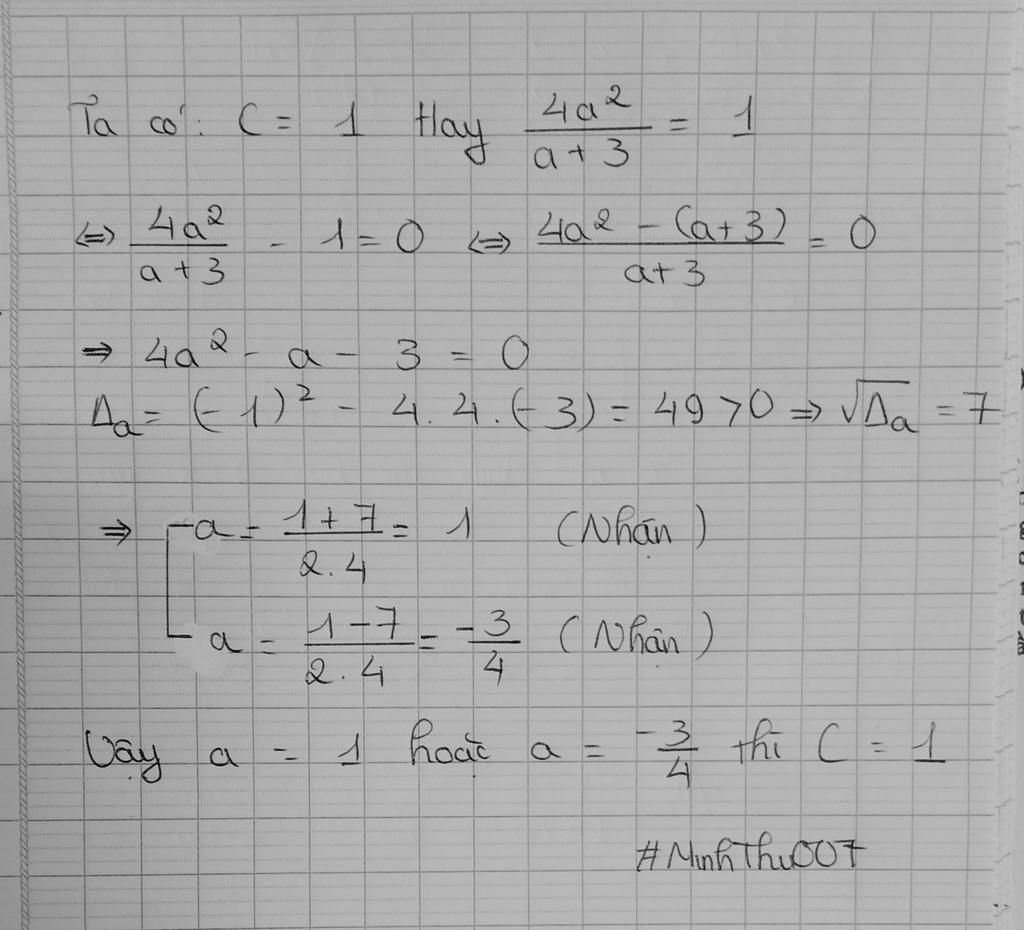 Ta có: C = 1 Hay \frac{4a^2}{a+3} = 1
⇔ \frac{4a^2}{a+3} - 1 = 0 ⇔ \frac{4a^2 - (a+3)}{a+3} = 0
⇒ 4a² - a - 3 = 0
Δₐ = (-1)² - 4.4.(-3) = 49 > 0 ⇒ √Δₐ = 7
⇒ a = \frac{1+7}{2.4} = 1 (Nhận)
a = \frac{1-7}{2.4} = \frac{-3}{4} (Nhận)
Vậy a = 1 hoặc a = \frac{-3}{4} thì C = 1
#MinhThu007